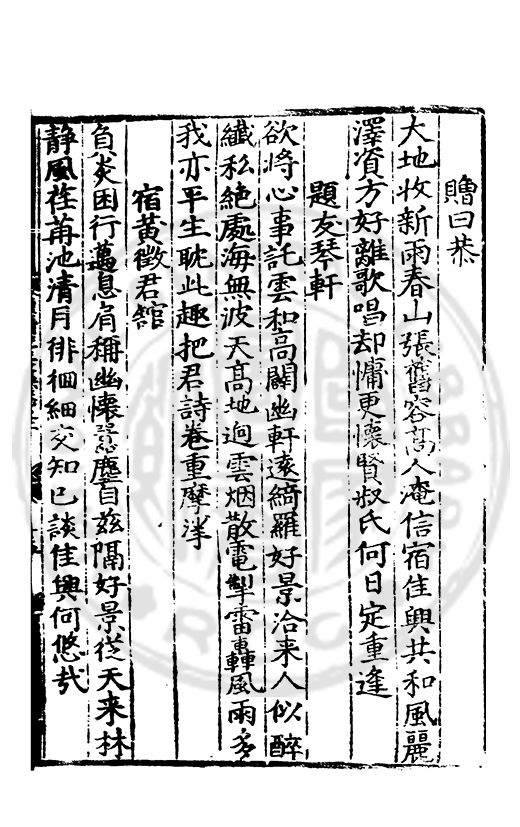 贈曰恭
大地收新雨春山張舊容高人淹信宿佳興共和風麗
澤資方好離歌唱却慵更懷賢叔氏何日定重逢
題友琴軒
欲將心事託雲和高闢幽軒遠綺羅好景洽来人似醉
纖私絶處海無波天髙地迥雲烟散電掣雷轟風雨多
我亦平生耽此趣把君詩卷重摩挲
宿黄徵君舘
負炎困行邁息肩稱幽懷囂塵自兹隔好景從天来林
静風荏苒池清月徘徊細交知已談佳興何悠哉